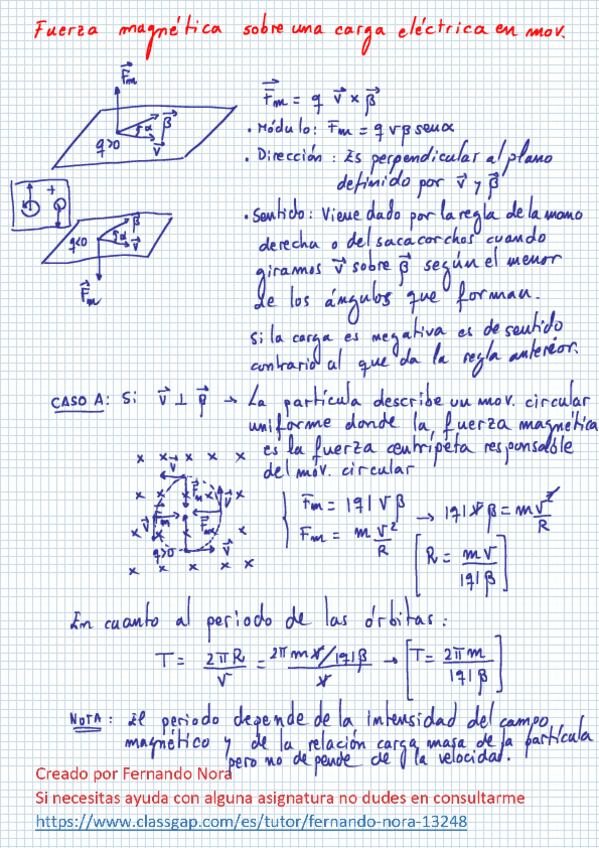 Fuerza magnética sobre una carga eléctrica en mov.
F⃗m
β⃗
α
v⃗
q>0
F⃗m = q v⃗ × β⃗
• Módulo: Fm = q v β senα
• Dirección: Es perpendicular al plano
definido por v⃗ y β⃗
+
β⃗
α
v⃗
q<0
F⃗m
• Sentido: Viene dado por la regla de la mano
derecha o del sacacorchos cuando
giramos v⃗ sobre β⃗ según el menor
de los ángulos que forman.
Si la carga es negativa es de sentido
contrario al que da la regla anterior.
CASO A: Si v⃗ ⊥ β⃗ → La partícula describe un mov. circular
uniforme donde la fuerza magnética
es la fuerza centrípeta responsable
del mov. circular
x x x x x
v⃗
F⃗m
v⃗
v⃗
F⃗m
F⃗m
q>0
v⃗
Fm = |q| v β
Fm = m v²/R
→ |q| v β = m v²/R
[R = mv/|q|β]
En cuanto al periodo de las órbitas:
T = 2πR/v = 2π m v/|q|β / v → [T = 2πm/|q|β]
NOTA: El periodo depende de la intensidad del campo
magnético y de la relación carga masa de la partícula
pero no depende de la velocidad.
Creado por Fernando Nora
Si necesitas ayuda con alguna asignatura no dudes en consultarme
https://www.classgap.com/es/tutor/fernando-nora-13248